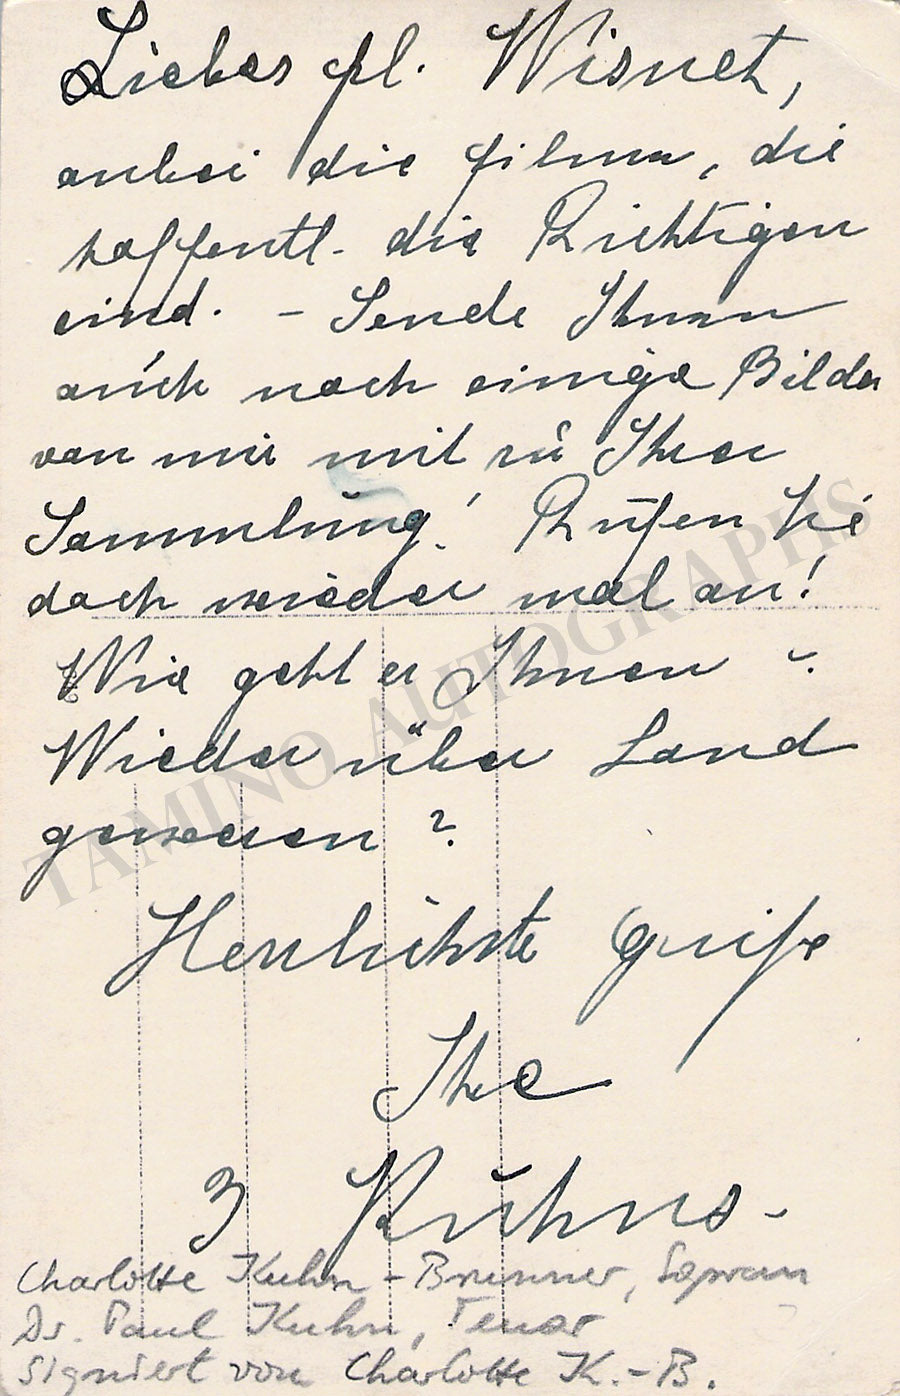 Liebes Frl. Wisnet,
anbei die Filme, die
hoffentl. die Richtigen
sind. – Sende Ihnen
auch noch einige Bilder
von mir mit zu Ihrer
Sammlung! Rufen Sie
doch wieder mal an!
Wie geht es Ihnen?
Wieder über Land
gewesen?
Herzlichste Grüße
Ihre
3 Kuhns-
Charlotte Kuhn-Brunner, Sopran
Dr. Paul Kuhn, Tenor
signiert von Charlotte K.-B.
TAMINO AUTOGRAPHS